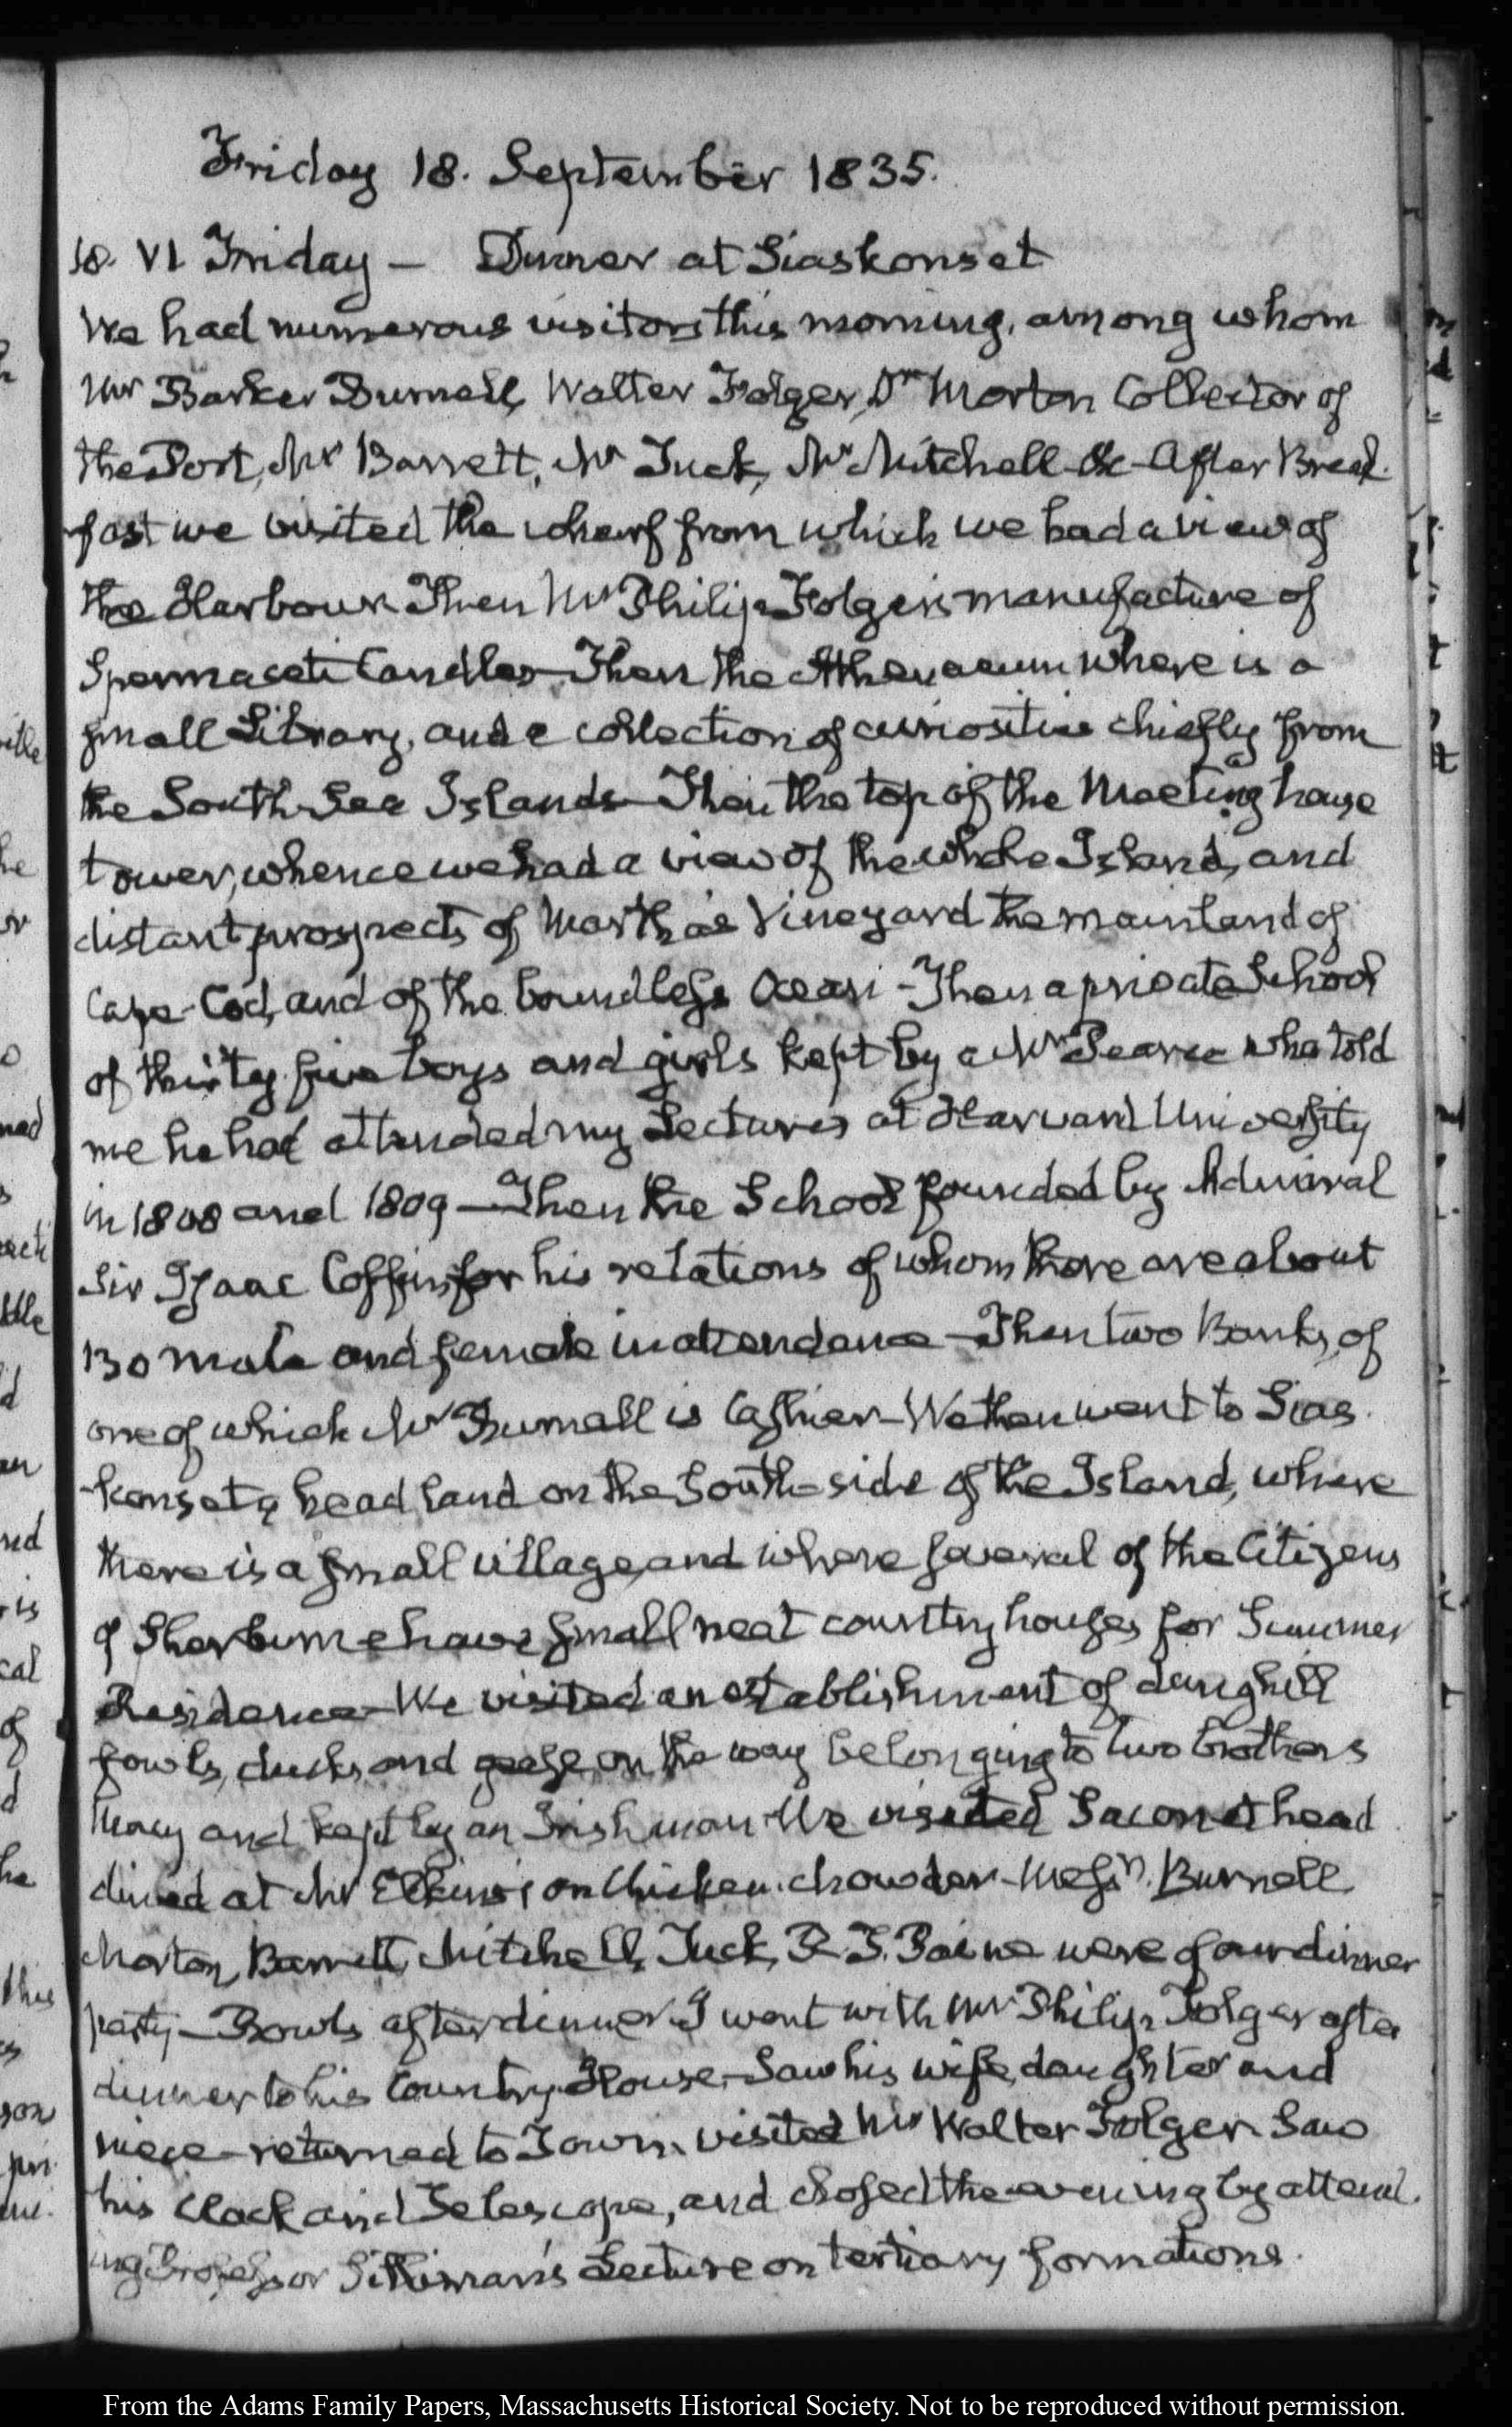 Friday 18. September 1835.
18. VI Friday — Dinner at Siaskonset
We had numerous visitors this morning, among whom
Mr Barker Burnell, Walter Folger, Dr Morton Collector of
the Port, Mr Barrett, Mr Tuck, Mr Mitchell &c— After Break-
fast we visited the wharf from which we had a view of
the Harbour. Then Mr Philip Folger's manufacture of
Spermaceti Candles— Then the Athenaeum where is a
small Library, and a collection of curiosities chiefly from
the South Sea Islands— Then the top of the Meeting house
tower, whence we had a view of the whole Island, and
distant prospects of Martha's Vineyard the mainland of
Cape-Cod, and of the boundless Ocean— Then a private School
of thirty five boys and girls kept by a Mr Pearce who told
me he had attended my Lectures at Harvard University
in 1808 and 1809— Then the School founded by Admiral
Sir Isaac Coffin for his relations of whom there are about
130 male and female in attendance— Then two Banks, of
one of which Mr Burnell is Cashier— We then went to Sias-
-konset a head land on the South-side of the Island, where
there is a small village, and where several of the Citizens
of Sherburne have small neat country houses for Summer
Residence— We visited an establishment of dunghill
fowls, ducks and geese on the way belonging to two brothers
Macy and kept by an Irishman. We visited head
dined at Mr Elkins's on Chicken chowder— Messrs. Burnell
Morton, Barrett, Mitchell, Tuck, R. T. Paine were of our dinner
party— Bowls after dinner. I went with Mr Philip Folger after
dinner to his Country House— Saw his wife, daughter and
niece— returned to Town. visited Mr Walter Folger. Saw
his Clock and Telescope, and closed the evening by attend-
ing Professor Silliman's Lecture on tertiary formations.
From the Adams Family Papers, Massachusetts Historical Society. Not to be reproduced without permission.